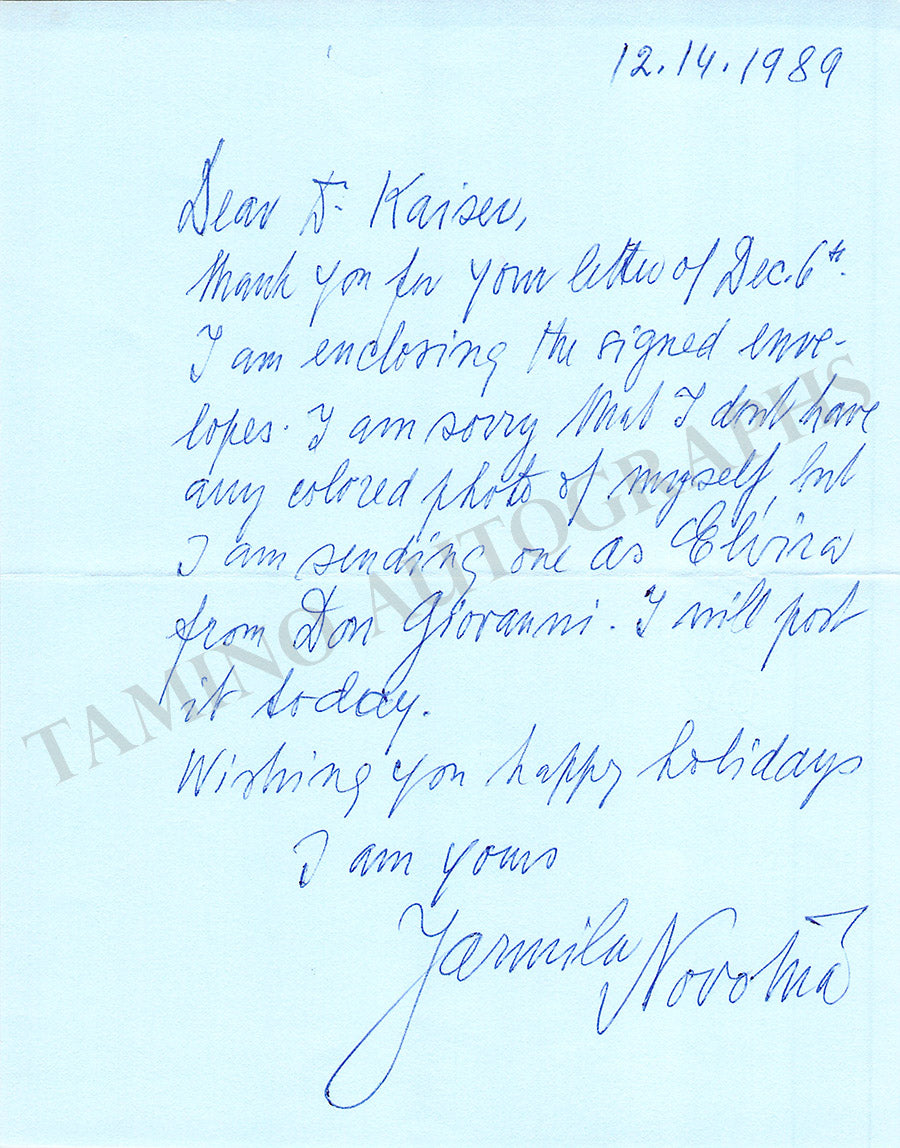 12.14.1989
Dear Dr Kaiser,
Thank you for your letter of Dec. 6th.
I am enclosing the signed enve-
lopes. I am sorry that I dont have
any colored photo of myself, but
I am sending one as Elvira
from Don Giovanni. I will post
it today.
Wishing you happy holidays
I am yours
Jarmila Novotná
TAMINO AUTOGRAPHS